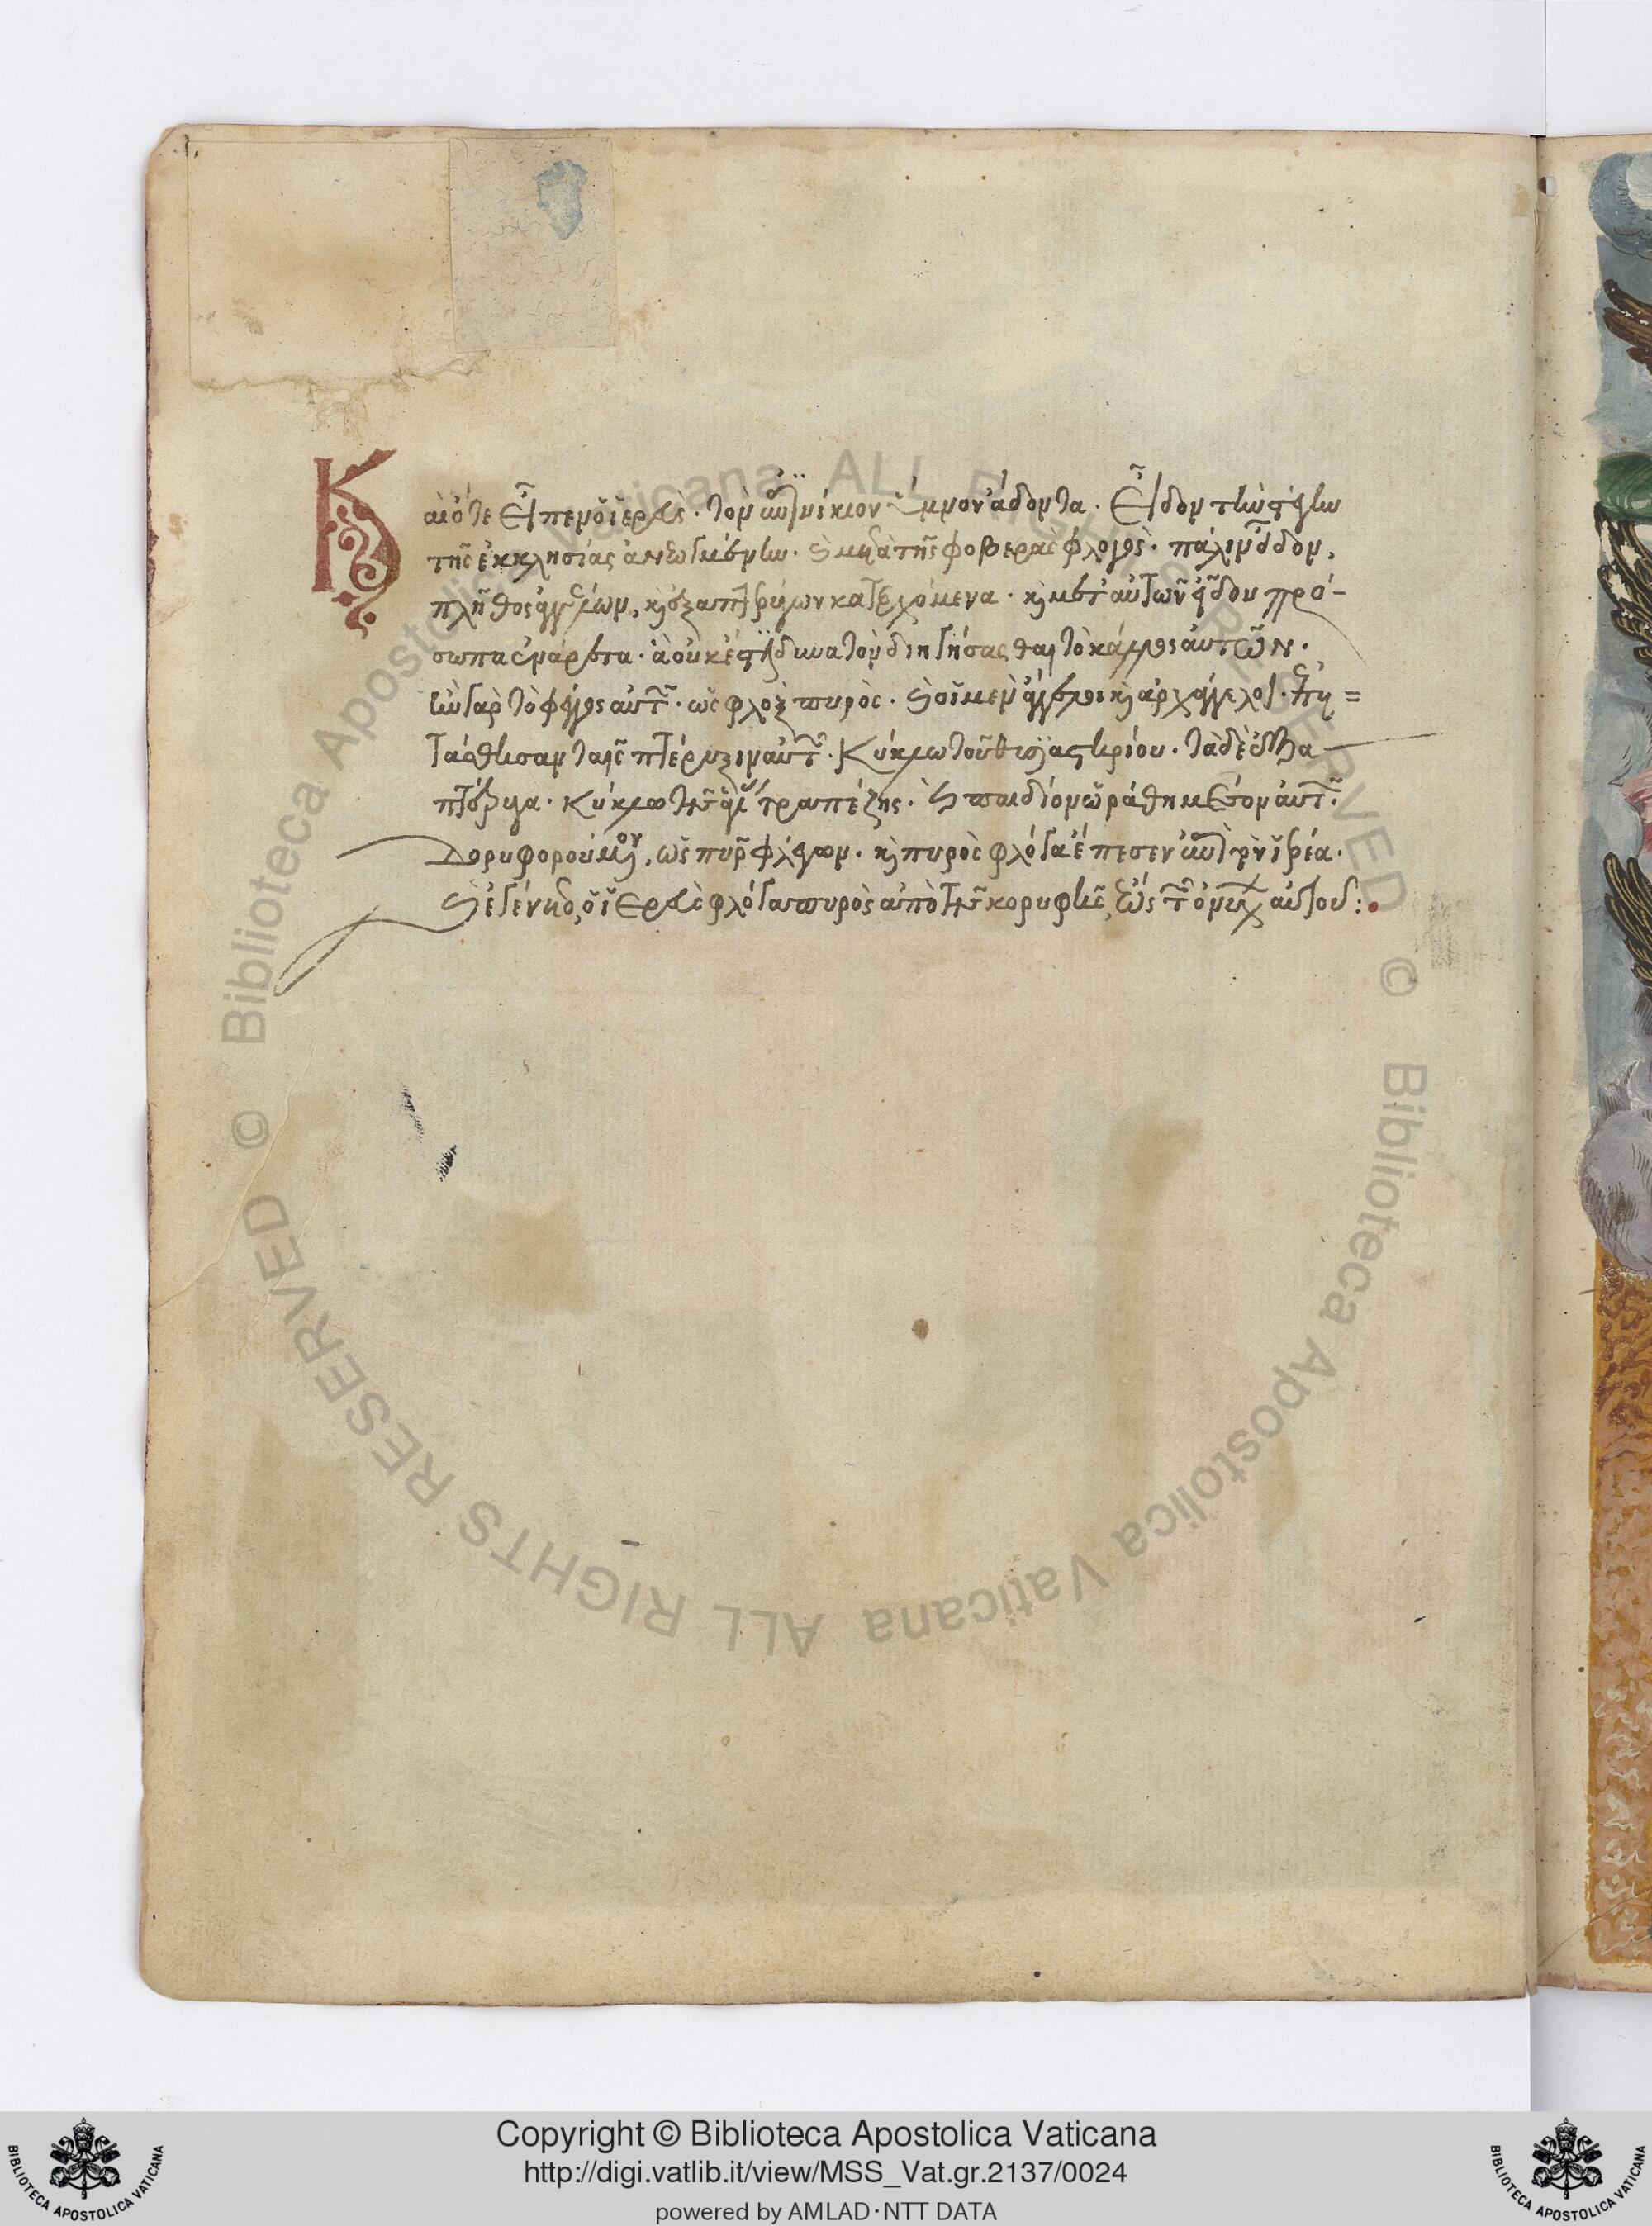 Καὶ ὅτε εἶπεν ὁ ἱερεὺς· τὸν ἐπινίκιον ὕμνον ἄδοντα. Εἶδον τὴν στέγην
τῆς ἐκκλησίας ἀνεωγμένην. καὶ μετὰ τῆς φοβερᾶς φλογὸς· πάλιν εἶδον,
πλῆθος ἀγγέλων, καὶ ἑξαπτέρυγων κατερχόμενα· καὶ μετ' αὐτῶν εἶδον πρό-
σωπα ἐνάρετα· ἃ οὐκ ἔστι δυνατὸν διηγήσασθαι τὸ κάλλος αὐτῶν.
ἦν γὰρ τὸ φέγγος αὐτῶν· ὡς φλὸξ πυρὸς. καὶ οἱ μὲν ἄγγελοι καὶ ἀρχάγγελοι·
τάσθησαν ταῖς πτέρυξιν αὐτῶν. Κύκλω τοῦ θυσϊαστηρίου. τὰ δὲ ἑξα
πτέρυγα. κύκλω τῆς ἁγίας τραπέζης. καὶ παιδίον ὡράθη μέσον αὐτῶν.
Δορυφορούμενον, ὡς πῦρ φλέγων. καὶ πυρὸς φλόγα ἔπεσεν ἐπὶ τὸν ἱερέα.
καὶ ἐγένετο, ὁ ἱερεὺς φλόγα πυρὸς ἀπὸ τῆς κορυφῆς, ἕως τῶν ὀνύχων αὐτοῦ :.
© Biblioteca Apostolica Vaticana ALL RIGHTS RESERVED
© Biblioteca Apostolica Vaticana ALL RIGHTS RESERVED
Copyright © Biblioteca Apostolica Vaticana
http://digi.vatlib.it/view/MSS_Vat.gr.2137/0024
powered by AMLAD·NTT DATA
BIBLIOTECA APOSTOLICA VATICANA
BIBLIOTECA APOSTOLICA VATICANA